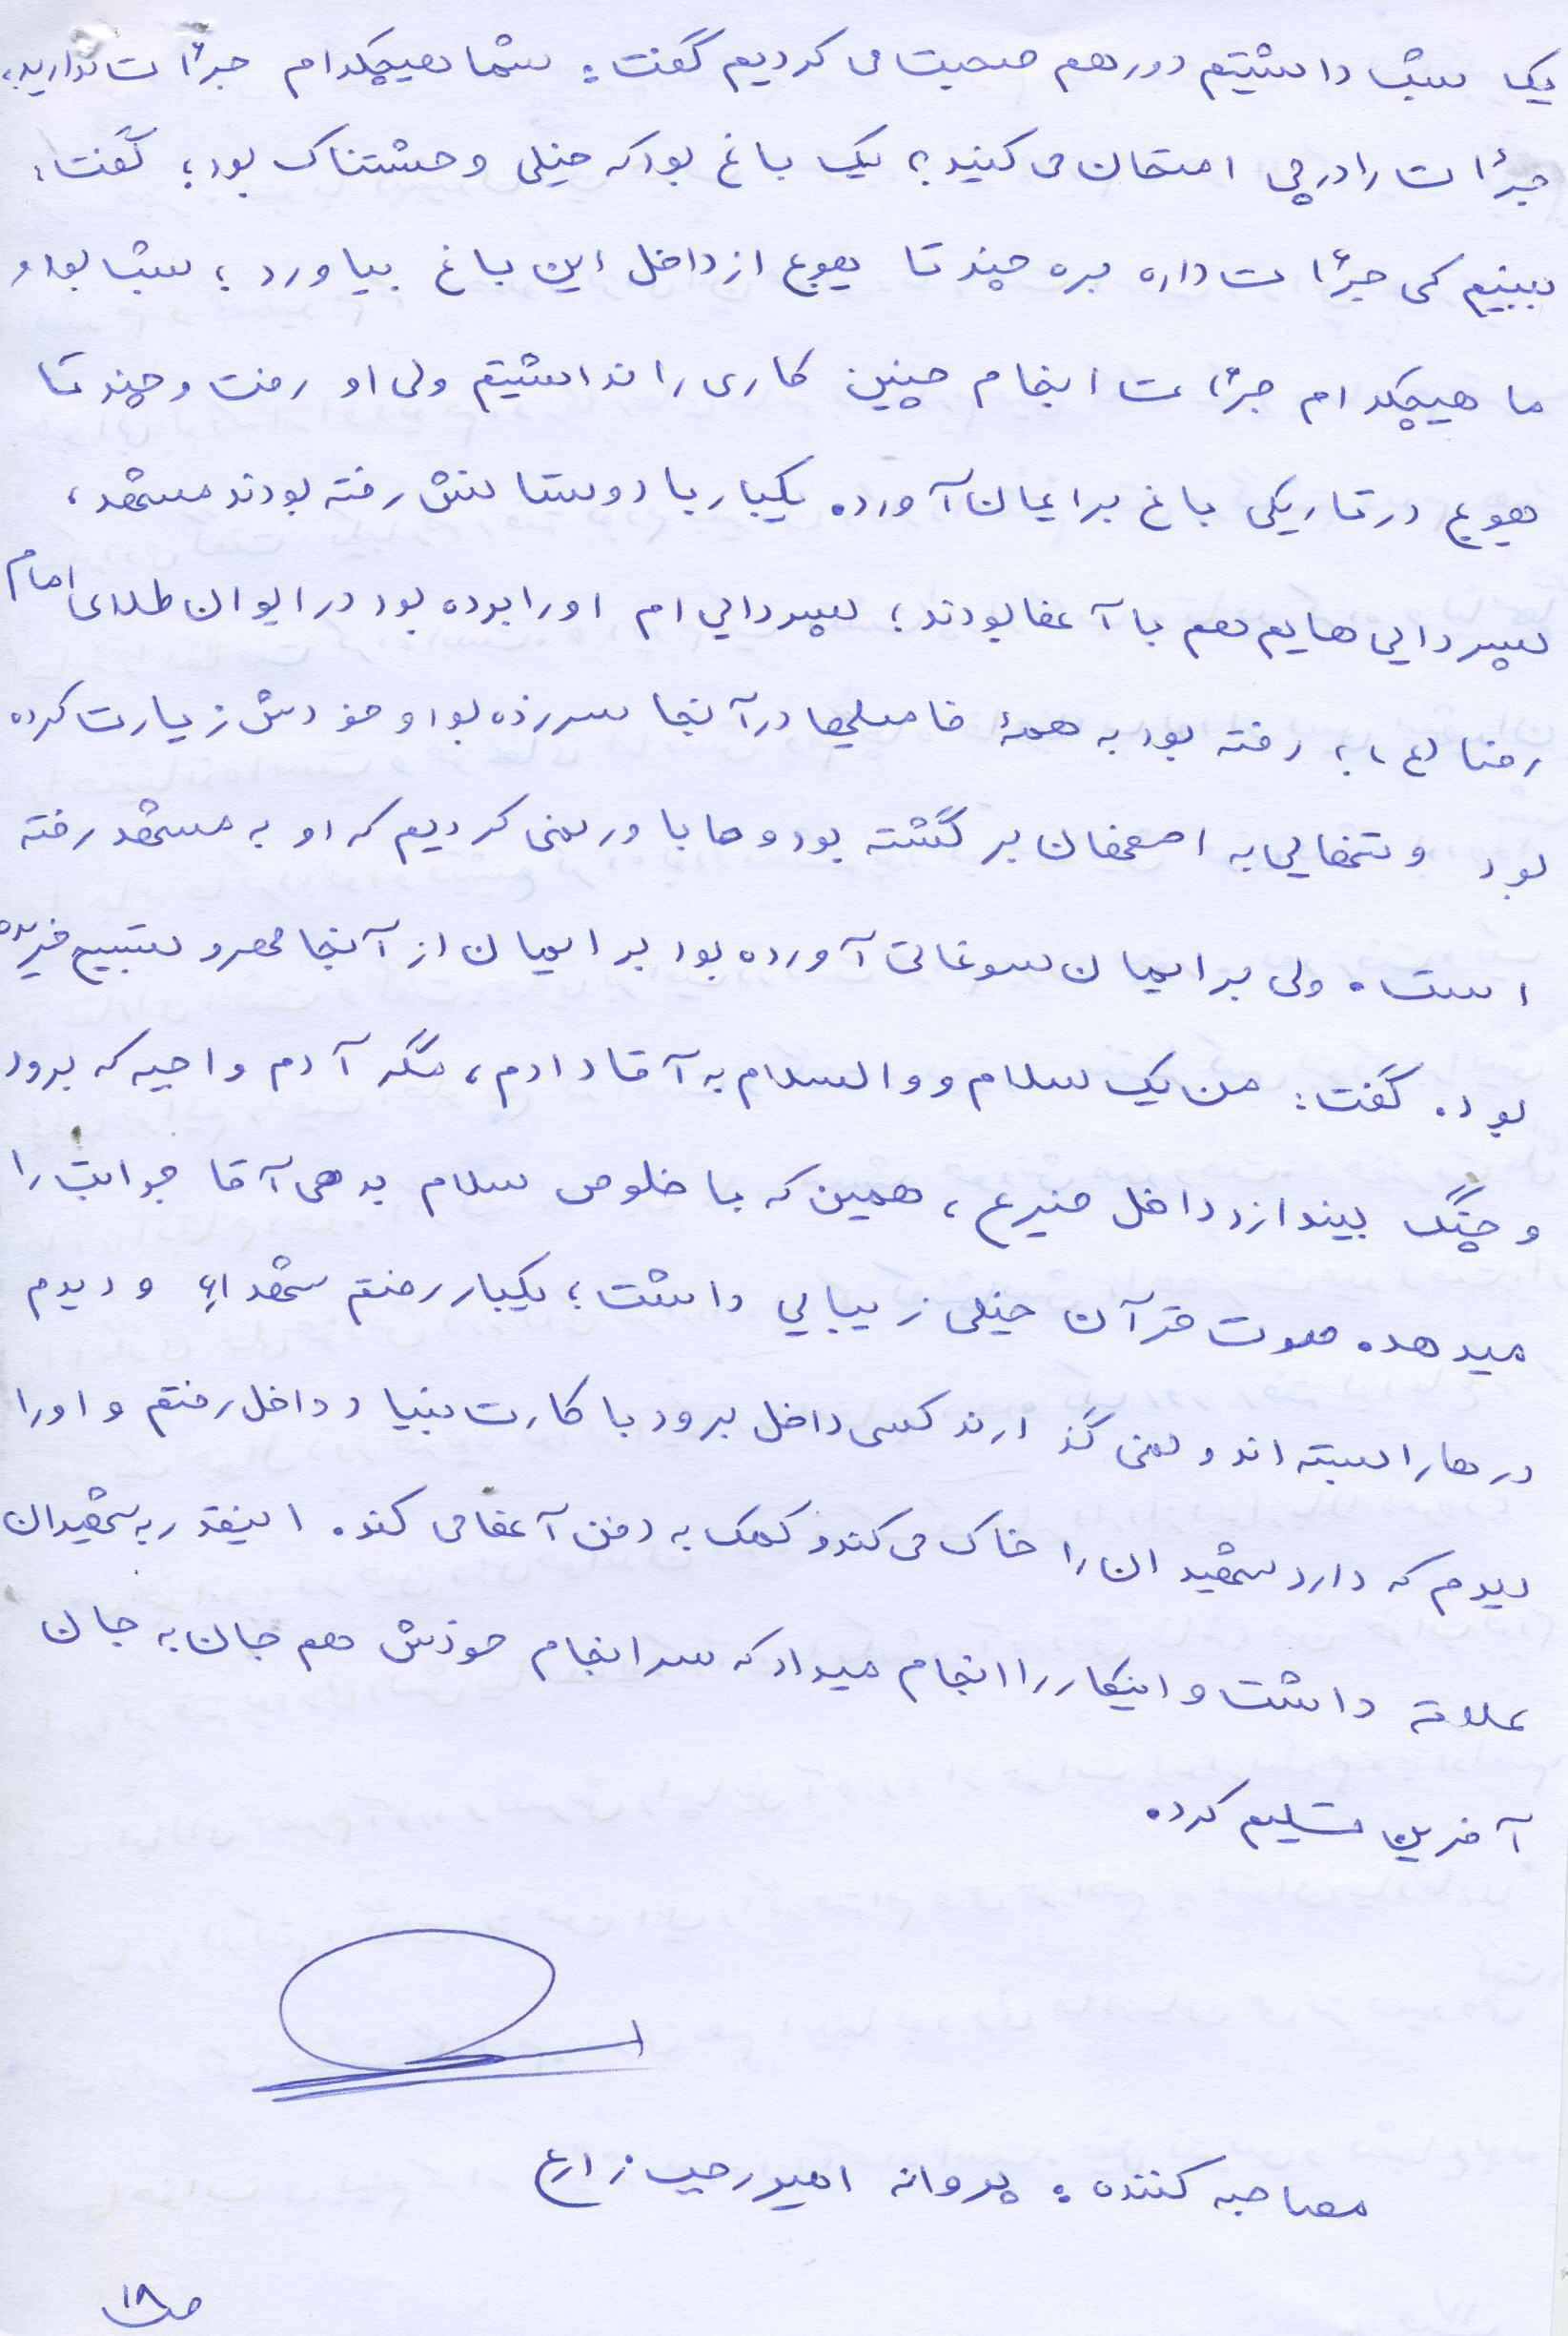 یک شب داشتیم دور هم صحبت می کردیم گفت: شما هیچکدام جرأت ندارید،
جرأت را در چی امتحان می کنید؟ یک باغ بود که خیلی وحشتناک بود؛ گفت:
ببینیم کی جرأت داره بره چند تا هویج از داخل این باغ بیاورد؛ شب بود و
ما هیچکدام جرأت انجام چنین کاری را نداشتیم ولی او رفت و چند تا
هویج در تاریکی باغ برایمان آورد. یکبار با دوستانش رفته بودند مشهد،
پسر دایی هایم هم با آنها بودند؛ پسر دایی ام او را برده بود در ایوان طلای امام
رضا (ع)، رفته بود به همۀ فامیلها در آنجا سر زده بود و خودش زیارت کرده
بود و تنهایی به اصفهان برگشته بود و ما باور نمی کردیم که او به مشهد رفته
است. ولی برایمان سوغاتی آورده بود برایمان از آنجا مهر و تسبیح خریده
بود. گفت: من یک سلام و والسلام به آقا دادم، مگه آدم واجبه که برود
و چنگ بیندازد داخل ضریح، همین که با خلوص سلام بدهی آقا جوابت را
میدهد. صوت قرآن خیلی زیبایی داشت؛ یکبار رفتم شهداء و دیدم
در ها را بسته اند و نمی گذارند کسی داخل برود با کارت بنیاد داخل رفتم و او را
دیدم که دارد شهیدان را خاک می کند و کمک به دفن آنها می کند. اینقدر به شهیدان
علاقه داشت و اینکار را انجام میداد که سرانجام خودش هم جان به جان
آفرین تسلیم کرد.
مصاحبه کننده: پروانه امیر رجب زارع
ص۱۸